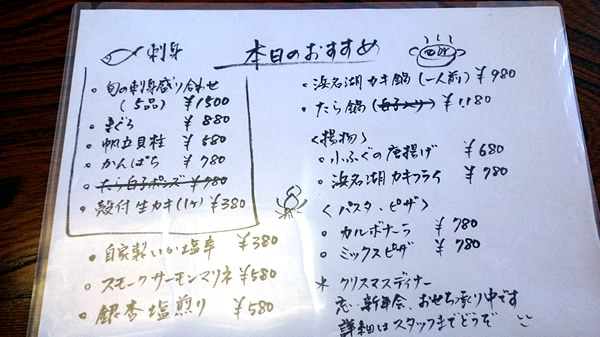 本日のおすすめ
刺身
○ 旬の刺身盛り合わせ
(5品) ¥1500
○ まぐろ ¥880
○ 帆立貝柱 ¥580
○ かんぱち ¥780
○ たら白子ポンズ ¥780
○ 殻付生カキ(1ヶ) ¥380
○ 自家製いか塩辛 ¥380
○ スモークサーモンマリネ ¥580
○ 銀杏塩煎り ¥580
○ 浜名湖カキ鍋(一人前) ¥980
○ たら鍋 ¥1,180
〈揚物〉
○ 小ふぐの唐揚げ ¥680
○ 浜名湖カキフライ ¥780
〈パスタ、ピザ〉
○ カルボナーラ ¥780
○ ミックスピザ ¥780
* クリスマスディナー
忘・新年会、おせち承り中です
詳細はスタッフまでどうぞ